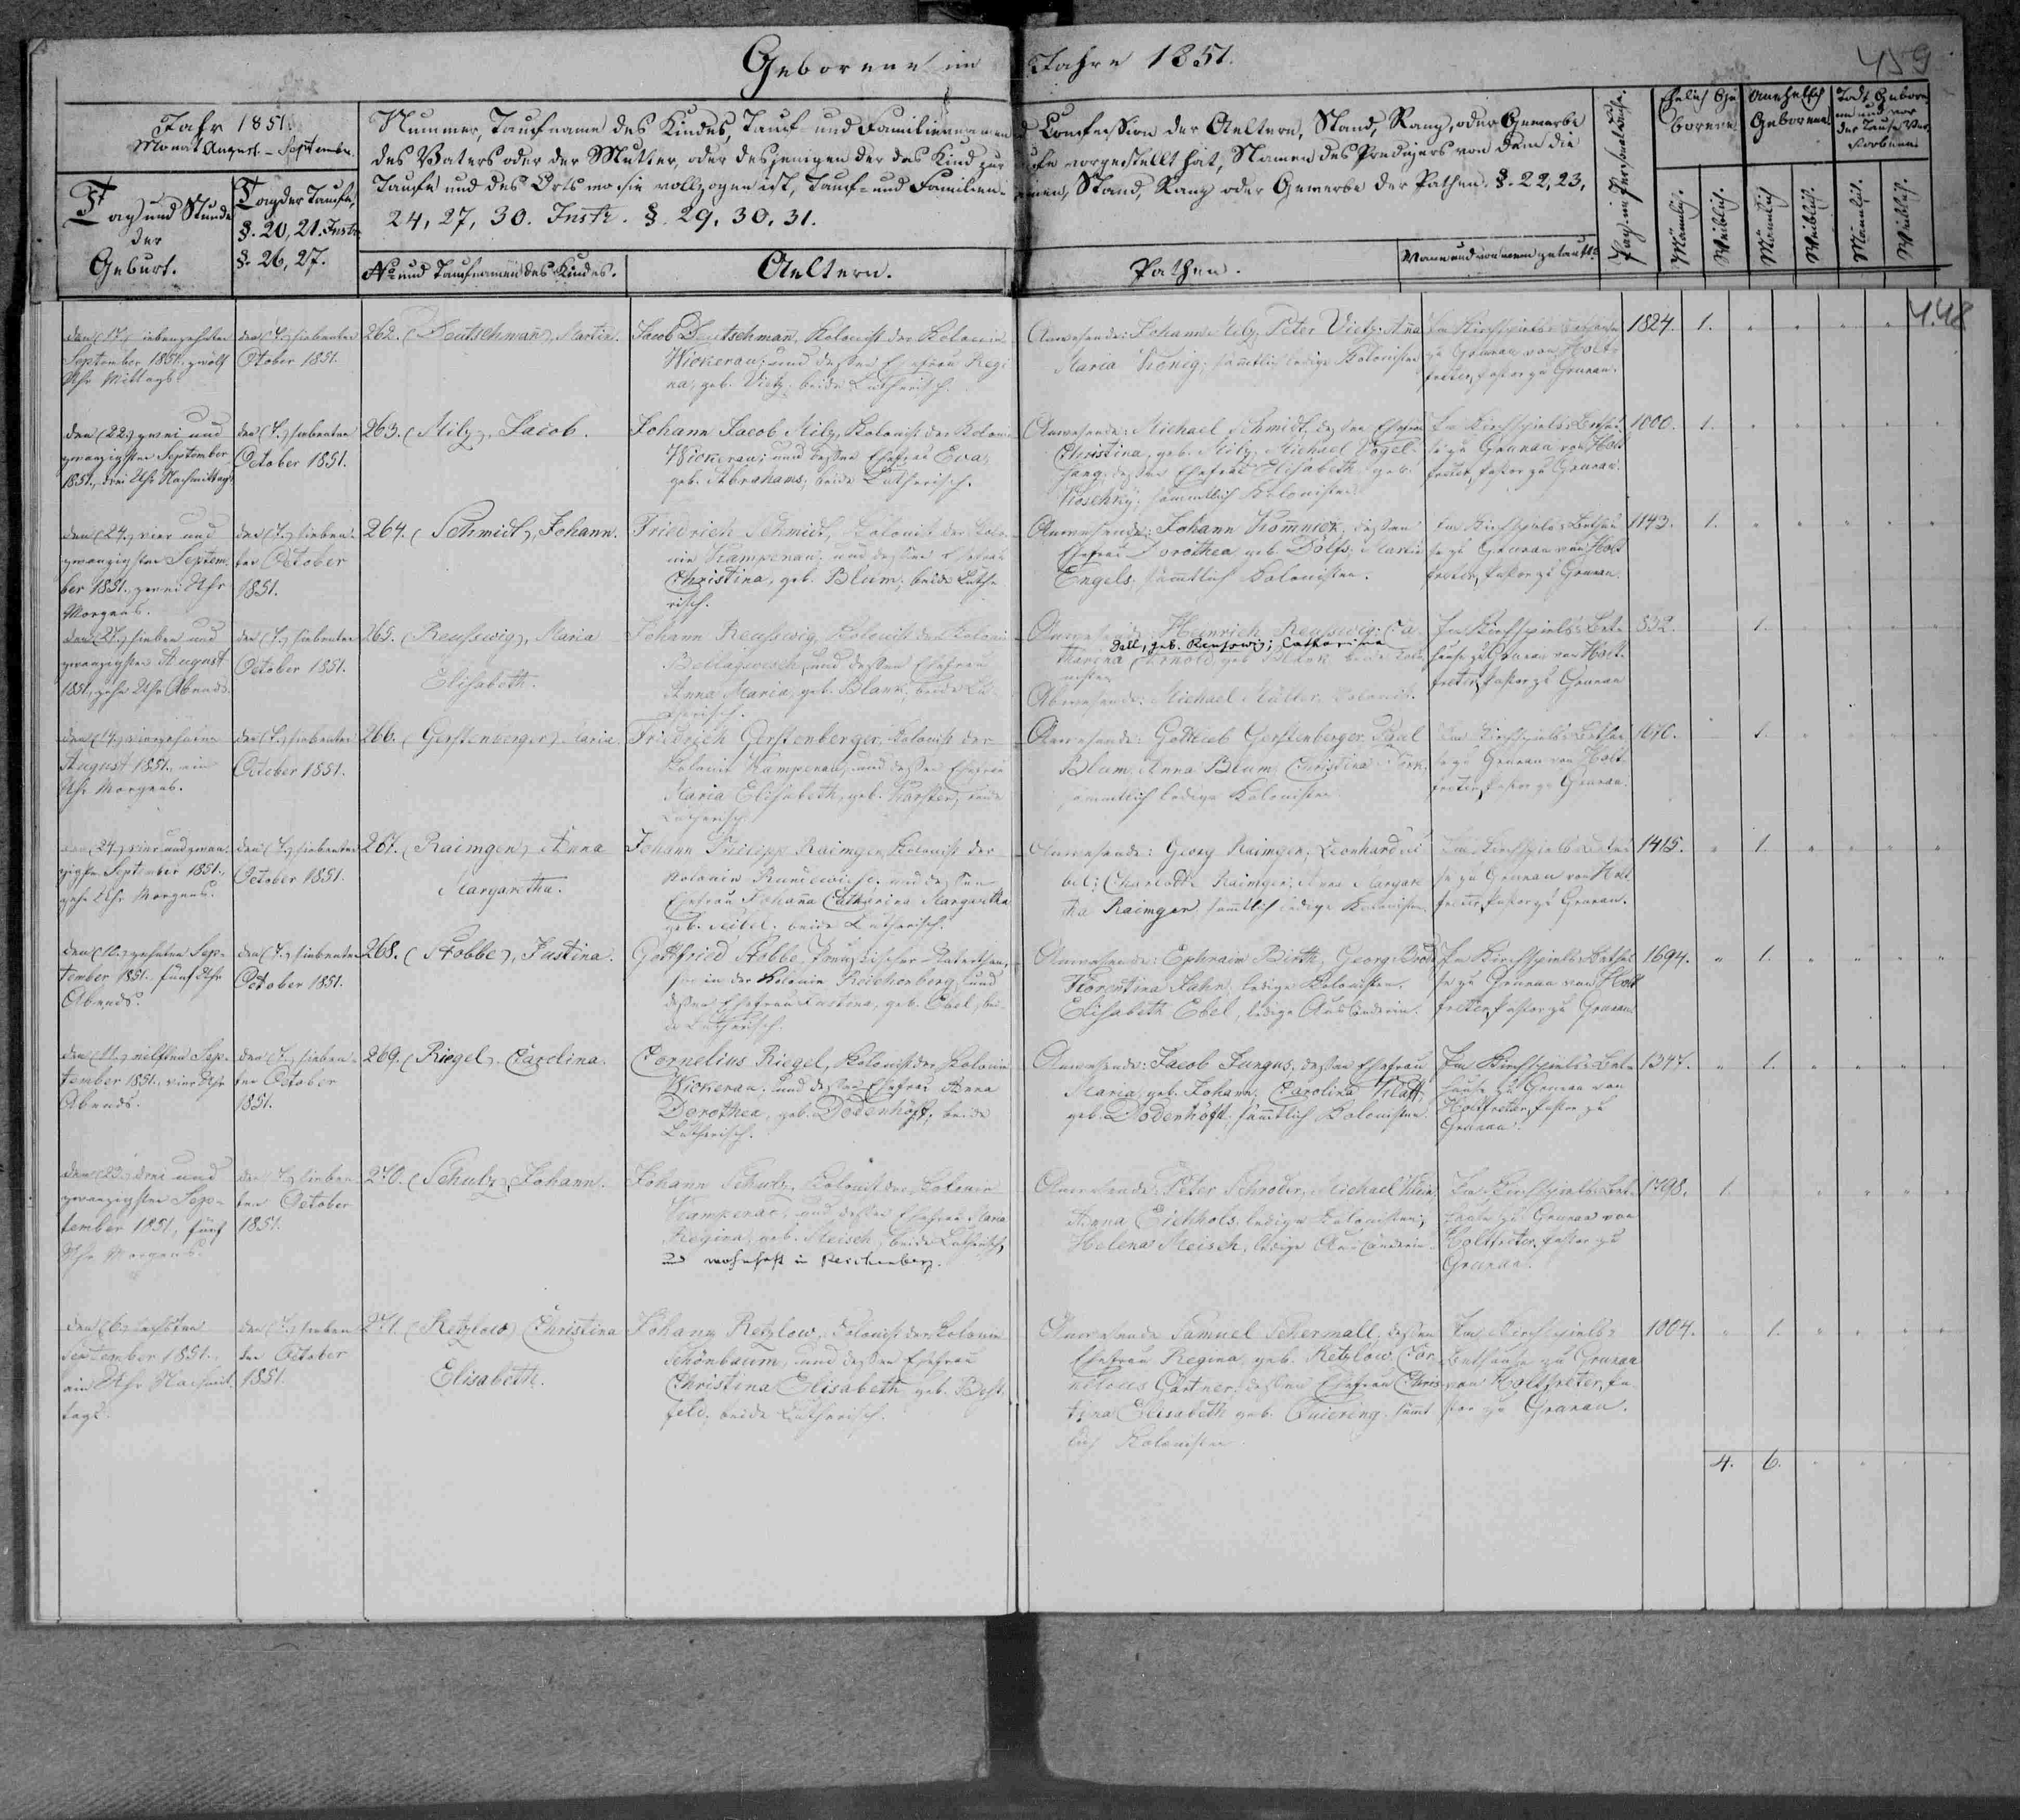 Geborene im Jahre 1851.
459
Jahr 1851.
Monat August - September
Tag und Stunde
der
Geburt.
Tag der Taufe,
§. 20, 21. Instr.
§. 26, 27.
Nummer, Taufname des Kindes, Tauf- und Familiennamen
des Vaters oder der Mutter, oder desjenigen der das Kind zur
Taufe und des Orts wo sie vollzogen ist, Tauf- und Familien-
24, 27, 30. Instr. §. 29, 30, 31.
No und Taufnamen des Kindes.
Aeltern.
Confession der Aeltern, Stand, Rang, oder Gewerbe
vorgestellt hat, Namen des Predigers von dem die
Stand, Rang oder Gewerbe der Pathen. §. 22, 23,
Pathen.
Wann und von wem getauft.
Pag. im Personal-Buche.
Ehelich Ge-
borene
Unehelich
Geborene
Todt Gebore
ne und vor
der Taufe Ver-
storbene
Männlich.
Weiblich.
Männlich
Weiblich.
Männlich.
Weiblich.
448
den (17.) siebenzehnten
September 1851., zwölf
Uhr Mittags.
den (7.) siebenten
October 1851.
262. (Deutschmañ), Martin.
Jacob Deutschmañ, Kolonist der Kolonie
Wickerau; und dessen Ehefrau Regi
na, geb. Vietz; beide Lutherisch.
Anwesende: Johann Milz, Peter Vietz; Aña
Maria König; sämmtlich ledige Kolonisten
Im Kirchspiels-Bethause
zu Grunau von Holt-
freter, Pastor zu Grunau.
1824. 1.
den (22.) zwei und
zwanzigsten September
1851., drei Uhr Nachmittags
den (7.) siebenten
October 1851.
263. (Milz), Jacob.
Johann Jacob Milz, Kolonist der Kolonie
Wickerau; und dessen Ehefrau Eva,
geb. Abrahams; beide Lutherisch.
Anwesende: Michael Schmidt, dessen Ehefrau
Christina, geb. Milz; Michael Vogel-
sang, dessen Ehefrau Elisabeth, geb.
Koschky; sämmtlich Kolonisten.
Im Kirchspiels-Bethau-
se zu Grunau von Holt
freter, Pastor zu Grunau.
1000. 1.
den (24.) vier und
zwanzigsten Septem-
ber 1851., zwei Uhr
Morgens.
den (7.) sieben-
ten October
1851.
264. (Schmidt), Johann.
Friedrich Schmidt, Kolonist der Kolo-
nie Kampenau; und dessen Ehefrau
Christina, geb. Blum; beide Luthe-
risch.
Anwesende: Johann Komnick, dessen
Ehefrau Dorothea, geb. Dölfs; Martin
Engels; sämtlich Kolonisten.
Im Kirchspiels-Bethau
se zu Grunau von Holt
freter, Pastor zu Grunau.
1143. 1.
den (27.) sieben und
zwanzigsten August
1851., zehn Uhr Abends.
den (7.) siebenten
October 1851.
265. (Reusswig), Maria
Elisabeth.
Johann Reusswig, Kolonist der Kolonie
Bellagwesch, und dessen Ehefrau
Anna Maria, geb. Blank; beide Lu-
therisch.
Anwesende: Heinrich Reusswig; Ca-
Dell, geb. Reusswig; Catharina
tharina Arnold, geb. Blank, beide Kolo
nisten
Abwesende: Michael Müller, Kolonist.
Im Kirchspiels-Bet-
hause zu Grunau von Holt-
freter, Pastor zu Grunau
832. 1.
den (14.) vierzehnten
August 1851., ein
Uhr Morgens.
den (7.) siebenten
October 1851.
266. (Gerstenberger), Maria.
Friedrich Gerstenberger, Kolonist der
Kolonie Kampenau, und dessen Ehefrau
Maria Elisabeth, geb. Karsten; beide
Lutherisch.
Anwesende: Gottlieb Gerstenberger, Paul
Blum, Anna Blum, Christina
sämmtlich ledige Kolonisten.
Im Kirchspiels-Bethau
se zu Grunau von Holt-
freter, Pastor zu Grunau.
1670. 1.
den (24.) vier und zwan-
zigsten September 1851.,
zehn Uhr Morgens.
den (7.) siebenten
October 1851.
267. (Raimgen), Anna
Margaretha.
Johann Philipp Raimgen, Kolonist der
Kolonie Rundewiese, und dessen
Ehefrau Johaña Catharina Margaretha
geb. Seibel; beide Lutherisch.
Anwesende: Georg Raimgen, Leonhard Sei
bel; Charlotte Raimgen; Anna Margare
tha Raimgen, sämtlich ledige Kolonisten.
Im Kirchspiels-Bethau
se zu Grunau von Holt
freter, Pastor zu Grunau.
1415. 1.
den (10.) zehnten Sep-
tember 1851. fünf Uhr
Abends.
den (7.) siebenten
October 1851.
268. (Stobbe), Justina.
Gottfried Stobbe, Preuszischer Unterthan,
in der Kolonie Reichenberg, und
dessen Ehefrau Justina, geb. Ebel, bei-
de Lutherisch.
Anwesende: Ephraim Birth, Georg
Florentina Jahn, ledige Kolonisten.
Elisabeth Ebel, ledige Ausländerin.
Im Kirchspiels-Bethau
se zu Grunau von Holt
freter, Pastor zu Grunau
1694. 1.
den (11.) eilften Sep-
tember 1851., vier Uhr
Abends.
den (7.) sieben-
ten October
1851.
269. (Riegel), Carolina.
Cornelius Riegel, Kolonist der Kolonie
Wickerau; und dessen Ehefrau Anna
Dorothea, geb. Dodenhöft, beide
Lutherisch.
Anwesende: Jacob Jungus, dessen Ehefrau
Maria, geb. Johann; Carolina Klatt
geb. Dodenhöft; sämtlich Kolonisten.
Im Kirchspiels-Bet-
hause zu Grunau von
Holtfreter, Pastor zu
Grunau.
1347. 1.
den (23.) drei und
zwanzigsten Sep-
tember 1851, fünf
Uhr Morgens.
den (7.) sieben
ten October
1851.
270. (Schulz), Johann.
Johann Schulz, Kolonist der Kolonie
Kampenau, und dessen Ehefrau Maria
Regina, geb. Meisch; beide Lutherisch,
und wohnhaft in Reichenberg.
Anwesende: Peter Schröder, Michael Klein,
Anna Eichholz, ledige Kolonisten;
Helena Meisch, ledige Ausländerin.
Im Kirchspiels-Bet-
hause zu Grunau von
Holtfreter, Pastor zu
Grunau.
1798. 1.
den (6.) sechsten
September 1851.,
ein Uhr Nachmit-
tags.
den (7.) sieben
ten October
1851.
271. (Retzlow) Christina
Elisabeth.
Johann Retzlow, Kolonist der Kolonie
Schönbaum, und dessen Ehefrau
Christina Elisabeth, geb.
feld; beide Lutherisch.
Anwesende Samuel Schermall, dessen
Ehefrau Regina, geb. Retzlow; Cor
nelius Gärtner, dessen Ehefrau Chris
tina Elisabeth, geb. Quiering, sämt
lich Kolonisten.
Im Kirchspiels-
Bethause zu Grunau
von Holtfreter, Pa
stor zu Grunau.
1004. 1.
4. 6.